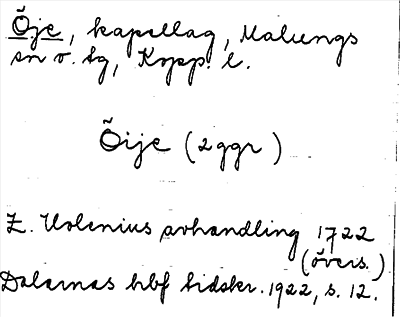 Öje, kapellag, Malungs
sn o. tg, Kopp. l.
Öije (2 ggr)
Z. Holenius avhandling 1722
(övers.)
Dalarnas hbf tidskr. 1922, s. 12.